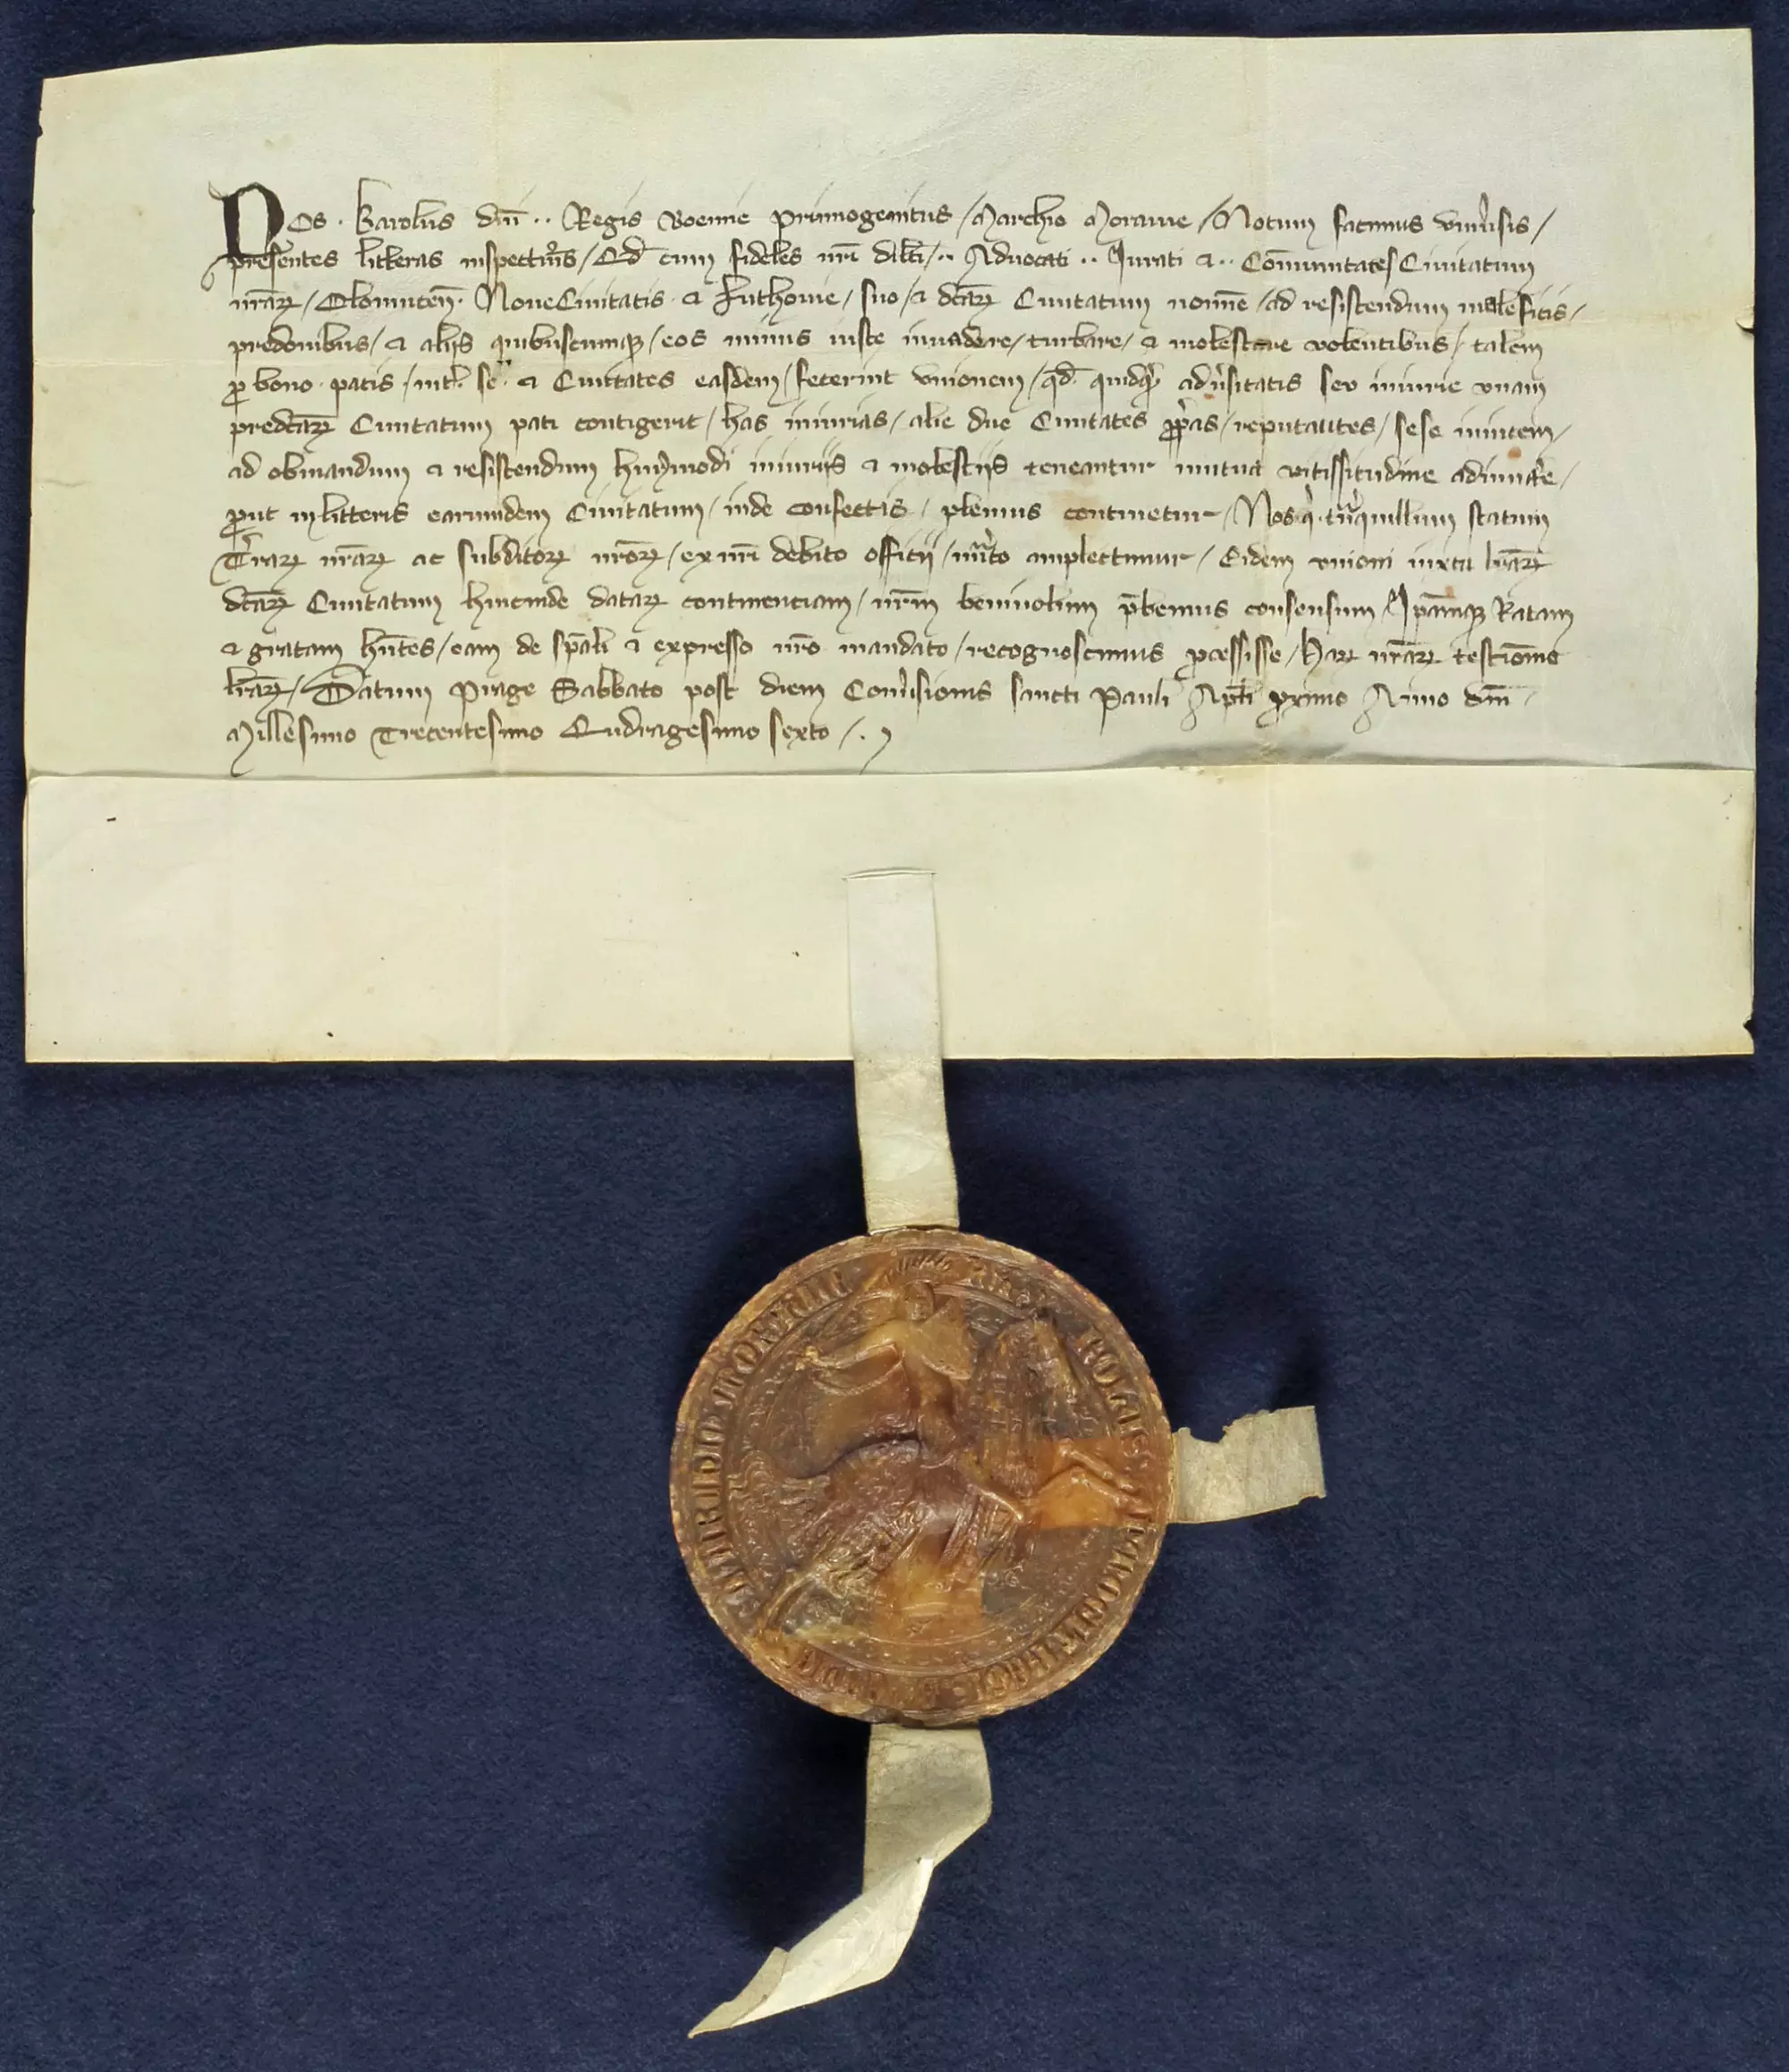 Nos . Karolus dn̄i .. Regis Boemie primogenitus / Marchio Morauie / Notum facimus vniu̾sis /
presentes litteras inspectur̾is / Qd̄ cum fideles nr̄i dilc̄i / .. Aduocati .. Iurati ⁊ .. Com̄unitates Ciuitatum
nr̄arꝝ / Olomucen̄ . NoueCiuitatis . ⁊ Luthouie / suo / ⁊ dc̄arꝝ Ciuitatum nomīe / ad resistendum maleficis /
predonibus / ⁊ alijs quibuscumqꝫ / eos minus iuste inuadere / turbare / ⁊ molestare volentibus / talem
ꝓ bono pacis / int̾ se ⁊ Ciuitates easdem / fecerint vnionem / qd̄ quidqͥd adu̾sitatis seu iniurie vnam
predc̄arꝝ Ciuitatum pati contigerit / has iniurias / alie due Ciuitates ꝓpͥas / reputantes / sese inuicem /
ad obuiandum ⁊ resistendum huiꝰmodi iniurijs ⁊ molestijs teneantur mutua vicissitudine adiuuare /
ꝓut in litteris earumdem Ciuitatum / inde confectis / plenius continetur / Nos qͥ tͣnquillum statum
Terrarꝝ nr̄arꝝ ac subditorꝝ nr̄orꝝ / ex nr̄i debito officij / merͥto amplectimur / Eidem vnioni iuxta lr̄arꝝ
dc̄arꝝ Ciuitatum hincinde datarꝝ continenciam / nr̄um beniuolum p̄bemus consensum / Ip̄amqꝫ Ratam
⁊ gratam hn̄tes / eam de sp̄ali ⁊ expresso nr̄o mandato / recognoscimus ꝓcessisse / Harꝝ nr̄arꝝ testimonio
lr̄arꝝ / Datum Prage Sabbato post diem Conu̾sionis sancti Pauli Apl̄i ꝓximo Anno dn̄i
Millesimo Trecentesimo Quadragesimo sexto / .